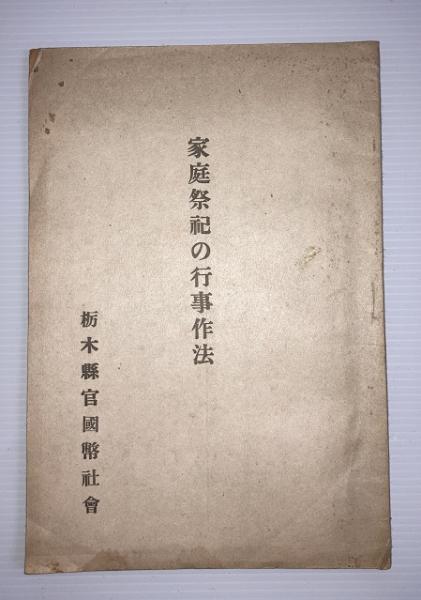 家庭祭祀の行事作法
栃木縣官國幣社會